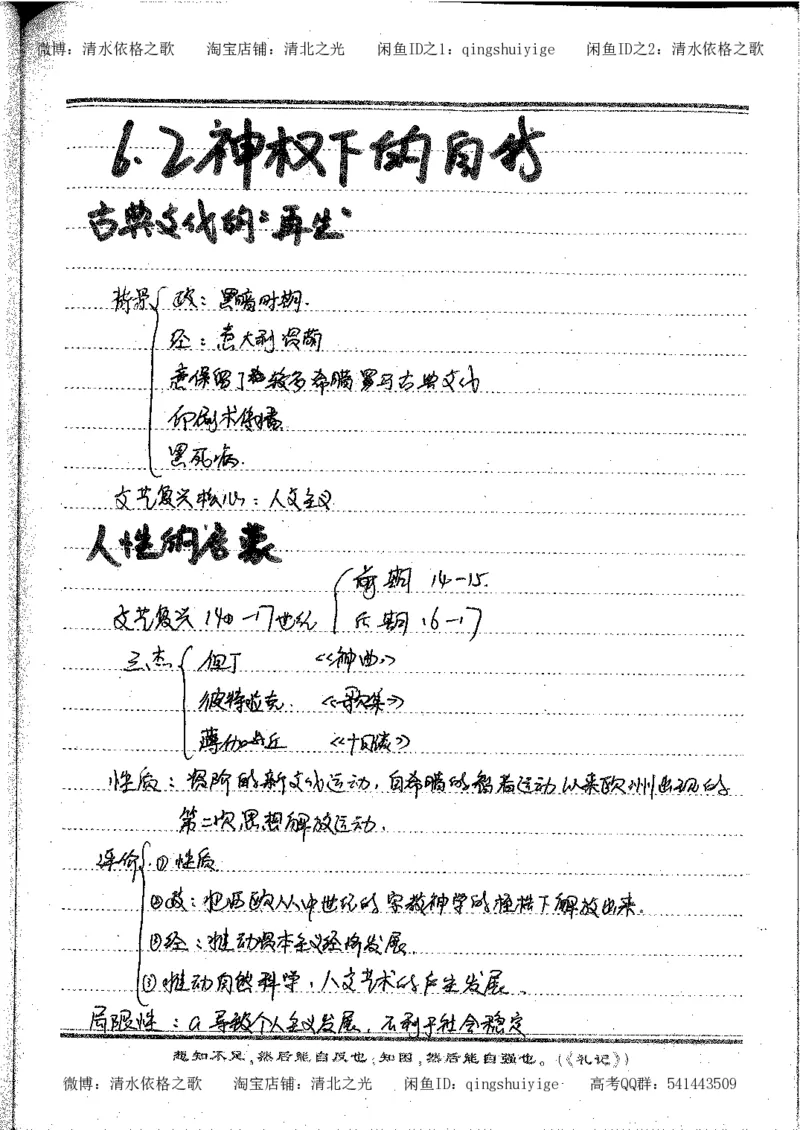 微博：清水依格之歌 淘宝店铺：清北之光 闲鱼ID之1：qingshuiyige 闲鱼ID之2：清水依格之歌
6.2神权下的自我
古典文化的"再生"
背景 政：黑暗时期.
经：意大利资萌
意保留了较多希腊罗马古典文化
印刷术传播
黑死病.
文艺复兴核心：人文主义
人性的启蒙
前期 14-15.
文艺复兴 14-17世纪 后期 16-17
三杰 但丁 《神曲》
彼特拉克 《歌集》
薄伽丘 《十日谈》
性质：资阶的新文化运动，自希腊的智者运动以来欧洲出现的
第二次思想解放运动.
评价 ①性质
②政：把西欧从中世纪的宗教神学的桎梏下解放出来.
③经：推动资本主义经济发展.
③推动自然科学，人文艺术的产生发展.
局限性：a 导致个人主义发展，不利于社会稳定
知不足，然后能自反也；知困，然后能自强也。(《礼记》)
微博：清水依格之歌 淘宝店铺：清北之光 闲鱼ID：qingshuiyige 高考QQ群：541443509